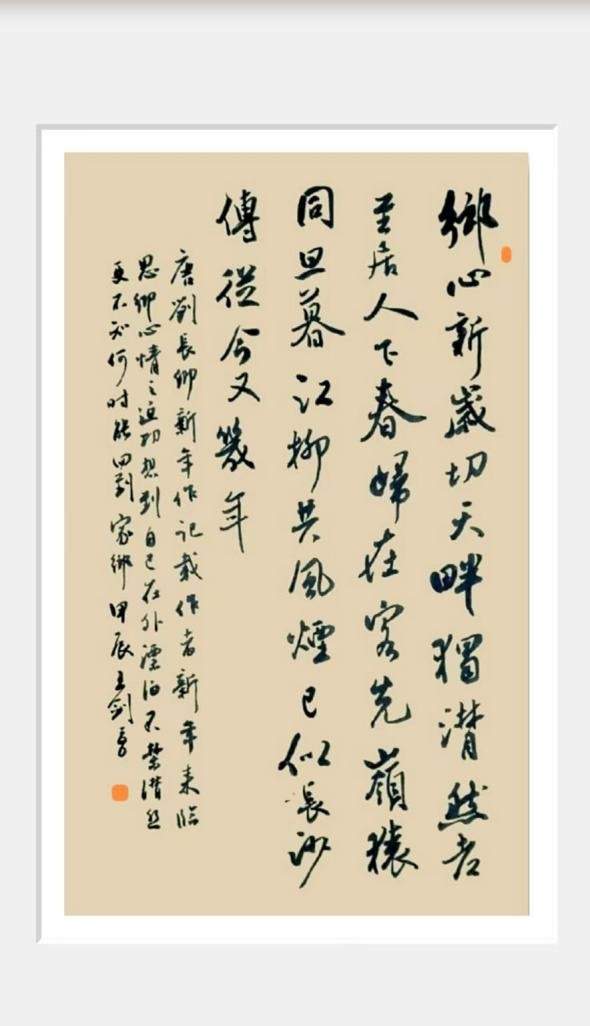 鄉心新歲切天畔獨潸然老
至居人下春婦在客先嶺猿
同旦暮江柳共風煙已似長沙
傅從今又幾年
唐劉長卿新年作記載作者新年来臨
思鄉心情之迫切想到自己在外漂泊不禁潸然
更不知何时能回到家鄉甲辰王剑